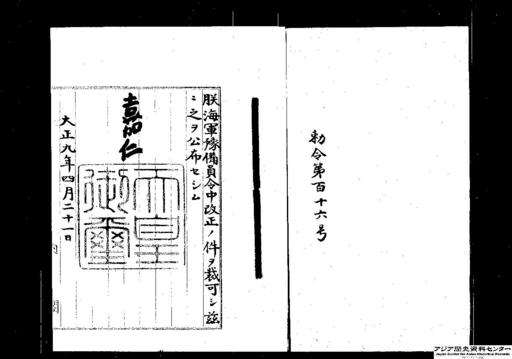 勅令第百十六号
朕海軍豫備員令中改正ノ件ヲ裁可シ茲
ニ之ヲ公布セシム
嘉仁
天皇
御璽
大正九年四月二十一日
内閣
アジア歴史資料センター
Japan Center for Asian Historical Records